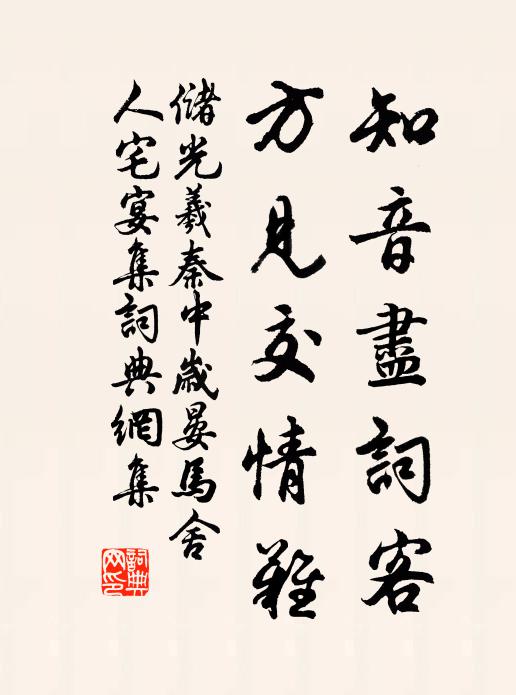 知音盡詞客
方見交情難
儲光羲秦中歲晏馬舍
人宅宴集詞典網集
詞典
网印